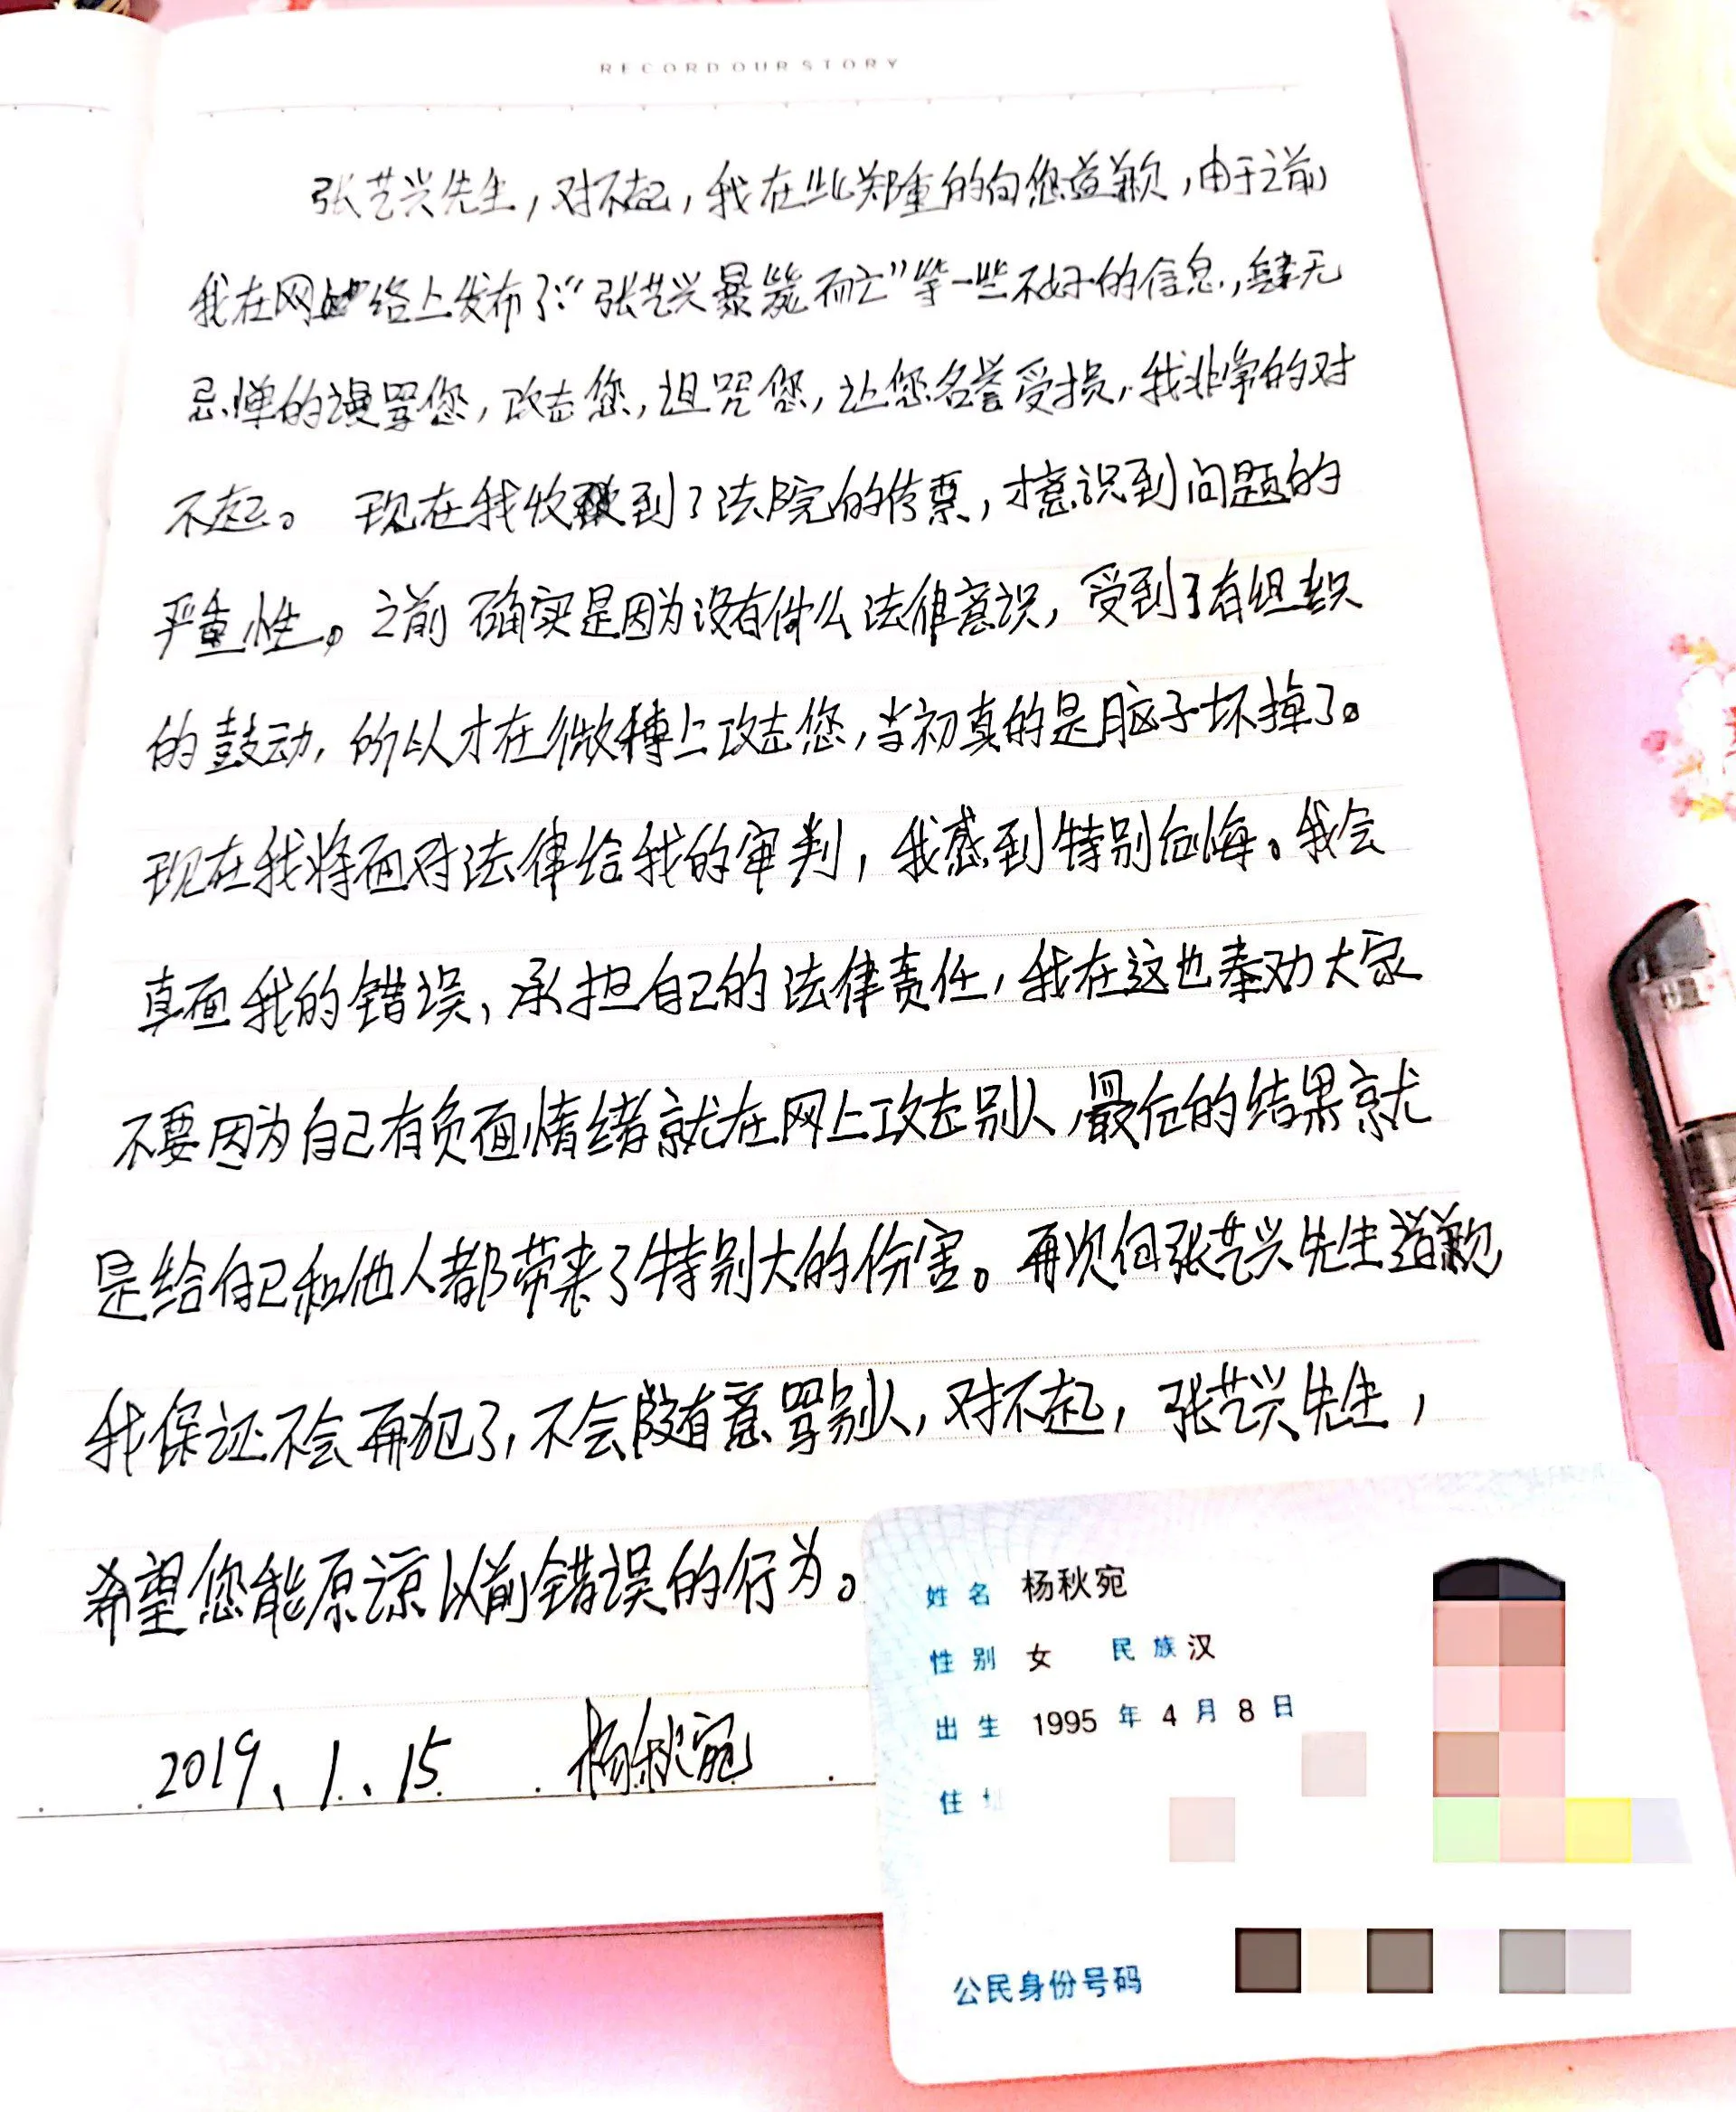 RECORD OUR STORY
张艺兴先生，对不起，我在此郑重的向您道歉，由于之前
我在网络上发布了：“张艺兴暴毙而亡”等一些不好的信息，肆无
忌惮的谩骂您，攻击您，诅咒您，让您名誉受损，我非常的对
不起。 现在我收到了法院的传票，才意识到问题的
严重性。之前确实是因为没有什么法律意识，受到了有组织
的鼓动，所以才在微博上攻击您，当初真的是脑子坏掉了。
现在我将面对法律给我的审判，我感到特别后悔。我会
直面我的错误，承担自己的法律责任，我在这也奉劝大家
不要因为自己有负面情绪就在网上攻击别人，最后的结果就
是给自己和他人都带来了特别大的伤害。再次向张艺兴先生道歉
我保证不会再犯了，不会随意骂别人，对不起，张艺兴先生，
希望您能原谅以前错误的行为。
2019、1、15 杨秋宛
姓名 杨秋宛
性别 女 民族 汉
出生 1995 年 4 月 8 日
住址
公民身份号码